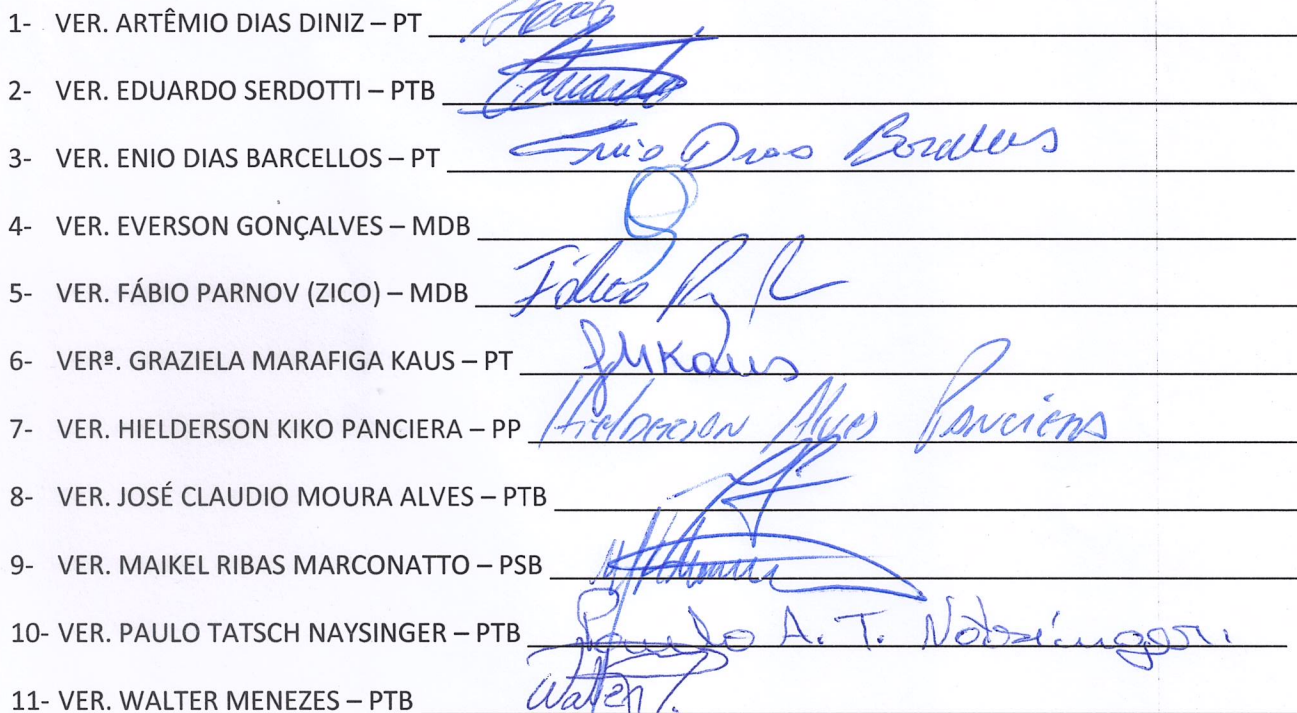 1- VER. ARTÊMIO DIAS DINIZ – PT
2- VER. EDUARDO SERDOTTI – PTB Eduardo
3- VER. ENIO DIAS BARCELLOS – PT Enio Dias Barcellos
4- VER. EVERSON GONÇALVES – MDB
5- VER. FÁBIO PARNOV (ZICO) – MDB Fábio
6- VERª. GRAZIELA MARAFIGA KAUS – PT GMKaus
7- VER. HIELDERSON KIKO PANCIERA – PP Hielderson Alves Panciera
8- VER. JOSÉ CLAUDIO MOURA ALVES – PTB
9- VER. MAIKEL RIBAS MARCONATTO – PSB
10- VER. PAULO TATSCH NAYSINGER – PTB Paulo A. T.
11- VER. WALTER MENEZES – PTB Walter